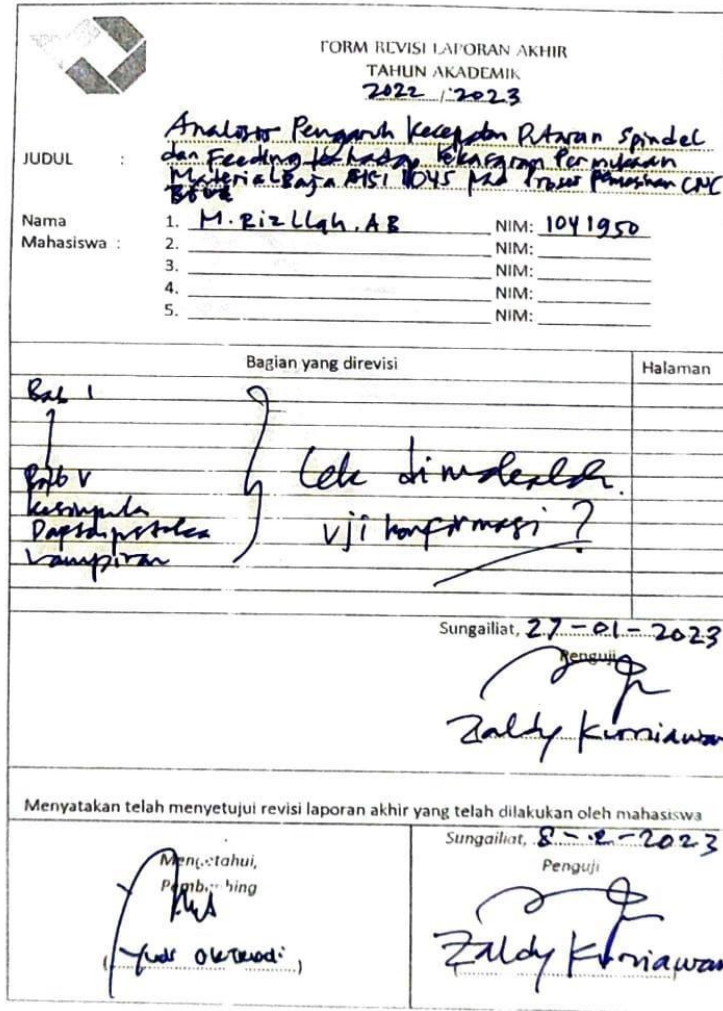 FORM REVISI LAPORAN AKHIR
TAHUN AKADEMIK
2022 / 2023
JUDUL :
Analisis Pengaruh Kecepatan Putaran Spindel
dan Feeding terhadap Kekasaran Permukaan
Material Baja AISI 1045 pad Proses Pemesinan CNC
Nama
Mahasiswa :
1. M. Rizllah. AB NIM: 1041950
2. NIM:
3. NIM:
4. NIM:
5. NIM:
Bagian yang direvisi Halaman
Bab I
Bab V
Kesimpula
Lampiran
Cek di makalah.
uji konfirmasi ?
Sungailiat, 27-01-2023
Penguji
Zaldy Kurniawan
Menyatakan telah menyetujui revisi laporan akhir yang telah dilakukan oleh mahasiswa
Mengetahui,
Pembimbing
Sungailiat, 8-2-2023
Penguji
(Zaldy Kurniawan)